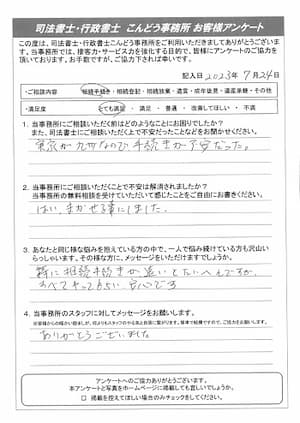 司法書士・行政書士 こんどう事務所 お客様アンケート
この度は、司法書士・行政書士こんどう事務所をご利用いただきましてありがとうございます。当事務所では、接客力・サービス力を強化する目的で、皆様にアンケートのご協力を頂いております。お手数ですが、ご協力下されば幸いです。
記入日 2023年 7月24日
・ご相談内容 相続手続き・相続登記・相続放棄・遺言・成年後見・遺産承継・その他
・満足度 とても満足 ・ 満足 ・ 普通 ・ 改善してほしい ・ 不満
1. 当事務所にご相談いただく前はどのようなことにお困りでしたか?
また、司法書士にご相談いただく上で不安だったことなどをお聞かせください。
実家が九州なので手続きが不安だった。
2. 当事務所にご相談いただくことで不安は解消されましたか?
当事務所の無料相談を受けていただいて感じたことをご自由にお書きください。
はい、まかせる事にしました。
3. あなたと同じ様な悩みを抱えている方の中で、一人で悩み続けている方も沢山いらっしゃいます。その様な方に、メッセージをいただけますでしょうか。
特に相続手続きが遠いとたいへんですが、
すべてやってもらい、安心です
4. 当事務所のスタッフに対してメッセージをお願いします。
ありがとうございました
アンケートへのご協力ありがとうございます。
本アンケートと写真をホームページに掲載しても宜しいでしょうか。
□ 掲載を控えてほしい場合のみチェックをしてください。